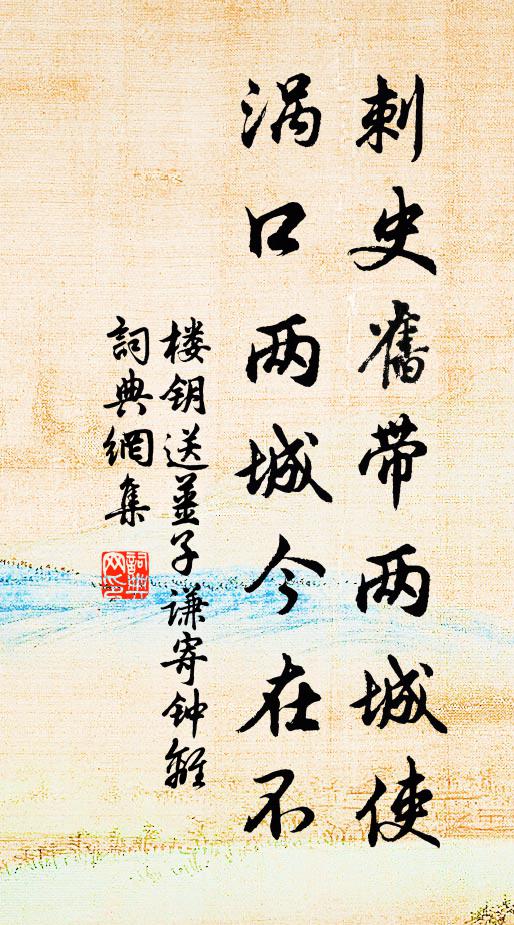 刺史舊带两城使
涡口两城今在不
楼钥送姜子谦寄钟離
詞典網集
詞典